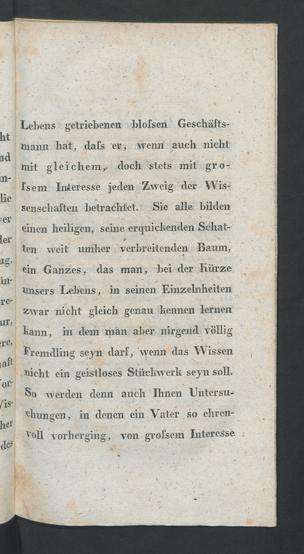 Lebens getriebenen bloſsen Geschäfts-
mann hat, daſs er, wenn auch nicht
mit gleichem, doch stets mit gro-
ſsem Interesse jeden Zweig der Wis-
senschaften betrachtet. Sie alle bilden
einen heiligen, seine erquickenden Schat-
ten weit umher verbreitenden Baum,
ein Ganzes, das man, bei der Kürze
unsers Lebens, in seinen Einzelnheiten
zwar nicht gleich genau kennen lernen
kann, in dem man aber nirgend völlig
Fremdling seyn darf, wenn das Wissen
nicht ein geistloses Stückwerk seyn soll.
So werden denn auch Ihnen Untersu-
chungen, in denen ein Vater so ehren-
voll vorherging, von groſsem Interesse